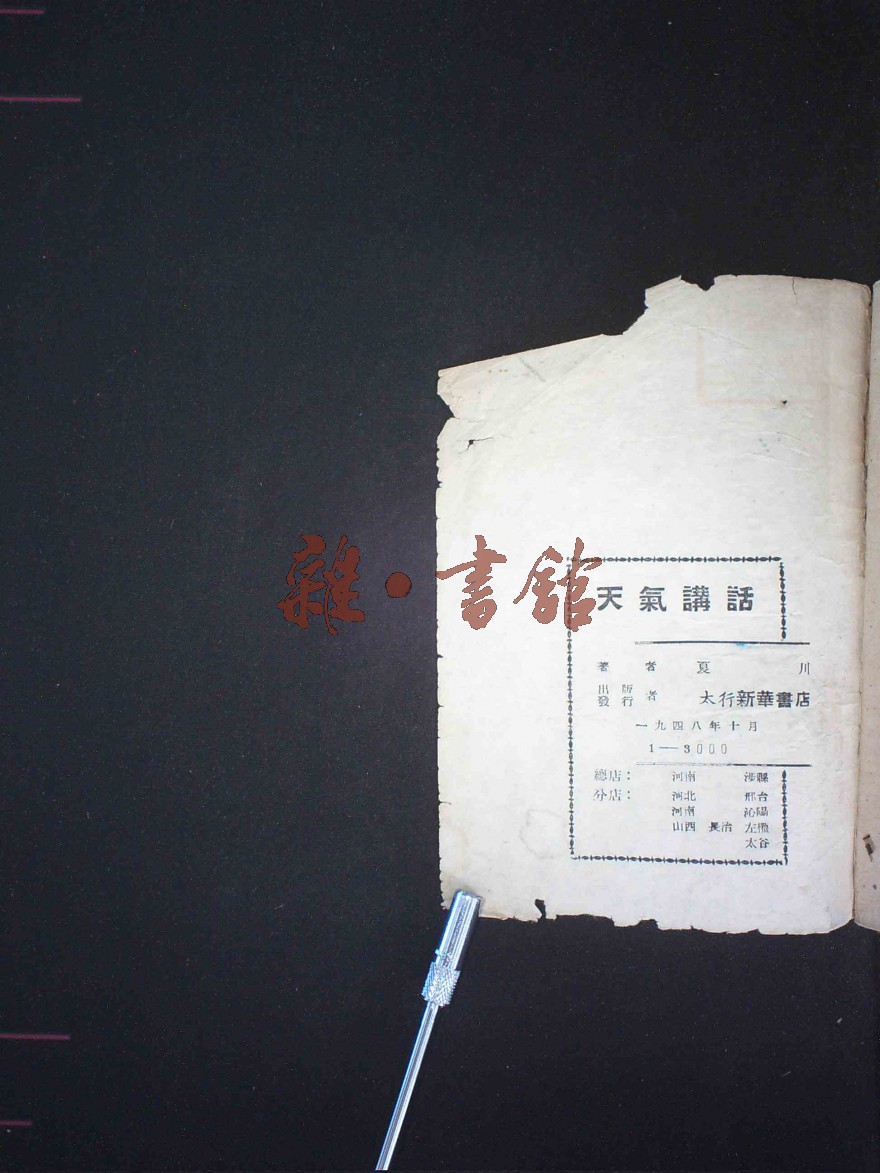 雜·書館
天氣講話
著者 夏川
出版發行者 太行新華書店
一九四八年十月
1—3000
總店： 河南 涉縣
分店： 河北 邢台
河南 沁陽
山西 長治 左權
太谷